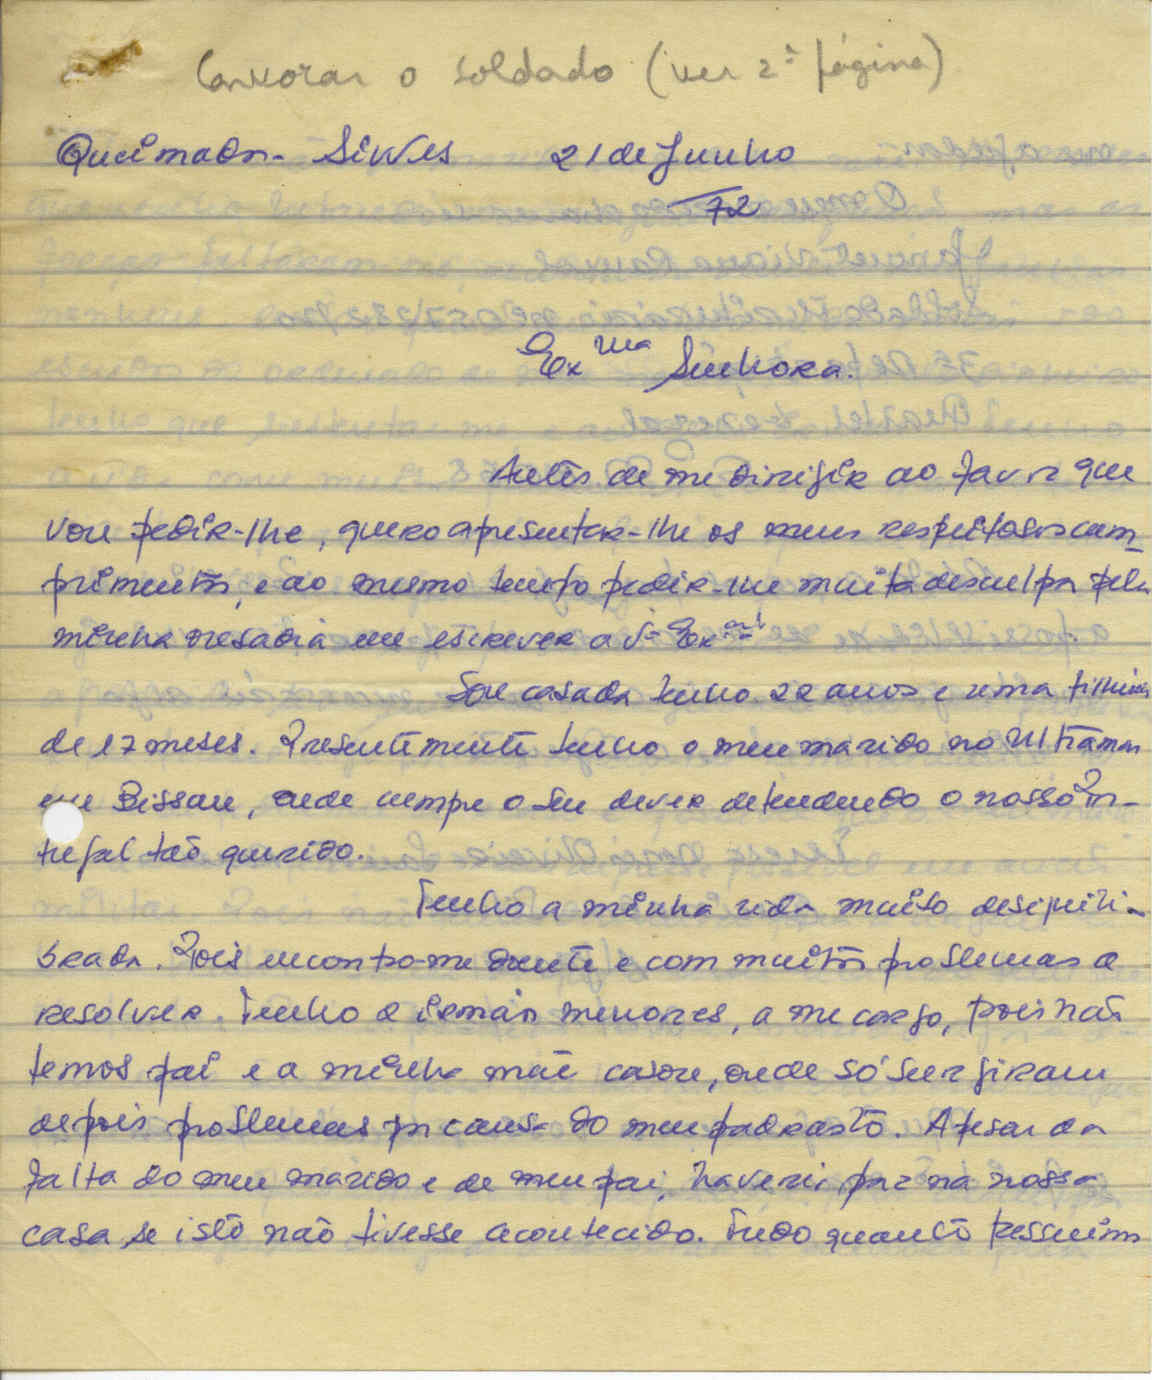 o soldado (ver 2ª página)
Queimada - Silves 21 de Junho
72
Exma Senhora.
Antes de me dirigir ao favor que
vou pedir-lhe, quero apresentar-lhe os meus respeitosos cum-
primentos, e ao mesmo tempo pedir-lhe muita desculpa pela
minha ousadia em escrever a V. Exa
Sou casada tenho 22 anos e uma filhinha
de 17 meses. Presentemente tenho o meu marido no Ultramar
em Bissau, onde cumpre o seu dever defendendo o nosso Por-
tugal tão querido.
Tenho a minha vida muito desiquili-
brada. Pois encontro-me doente e com muitos problemas a
resolver. Tenho 2 irmãos menores, a me cargo, pois não
temos pai e a minha mãe casou, onde só surgiram
depois problemas por causa do meu padrasto. Apesar da
falta do meu marido e de meu pai, haveria paz na nossa
casa se isto não tivesse acontecido. Tudo quanto possuimos